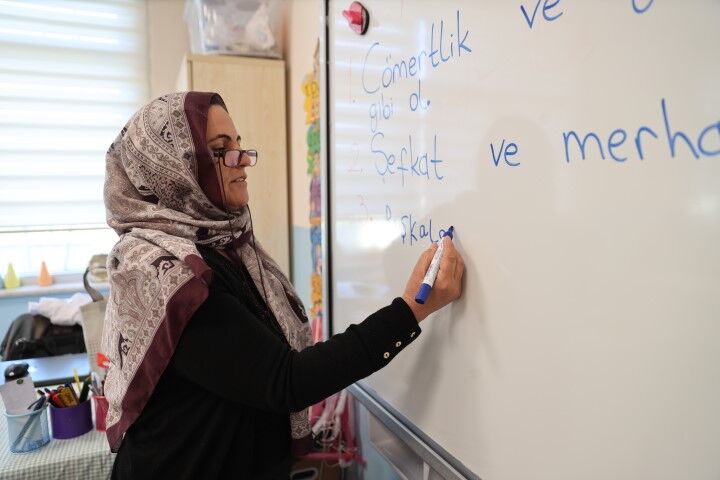 1. Cömertlik ve
gibi ol.
2. Şefkat ve merha
3. Başkala